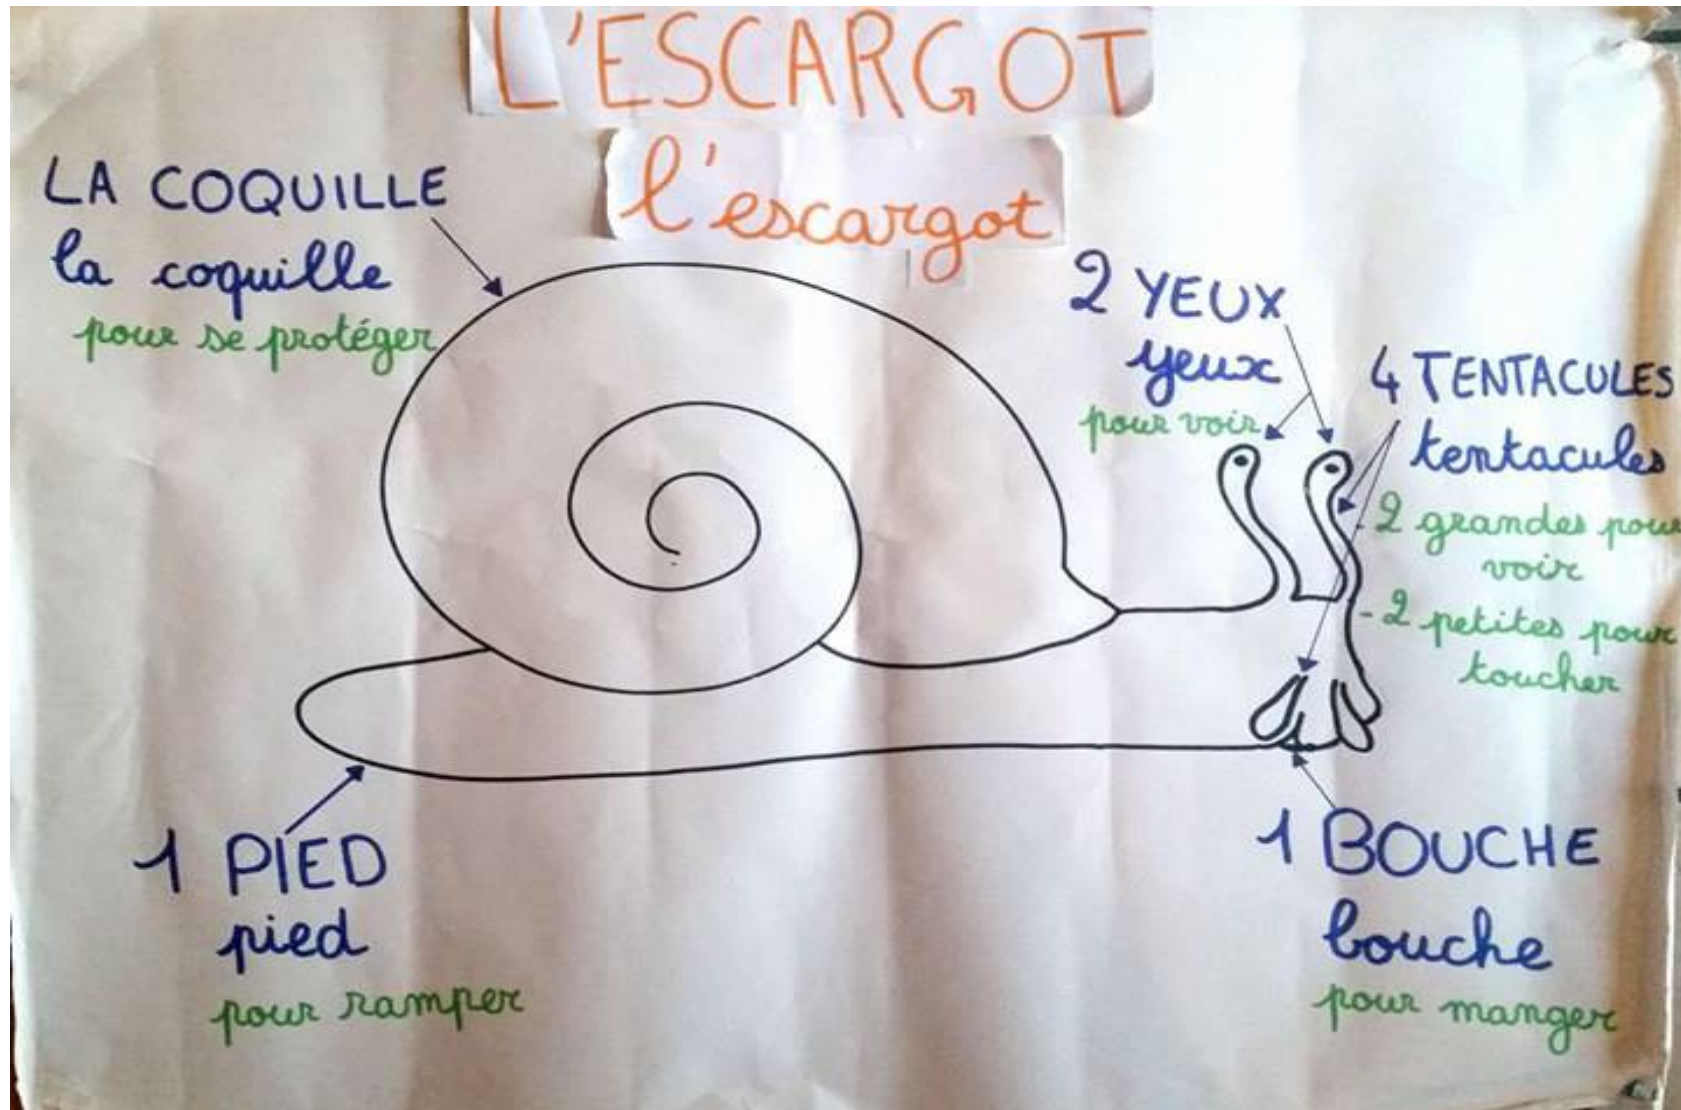 L'ESCARGOT
l'escargot
LA COQUILLE
la coquille
pour se protéger
2 YEUX
yeux
pour voir
4 TENTACULES
tentacules
- 2 grandes pour
voir
- 2 petites pour
toucher
1 PIED
pied
pour ramper
1 BOUCHE
bouche
pour manger